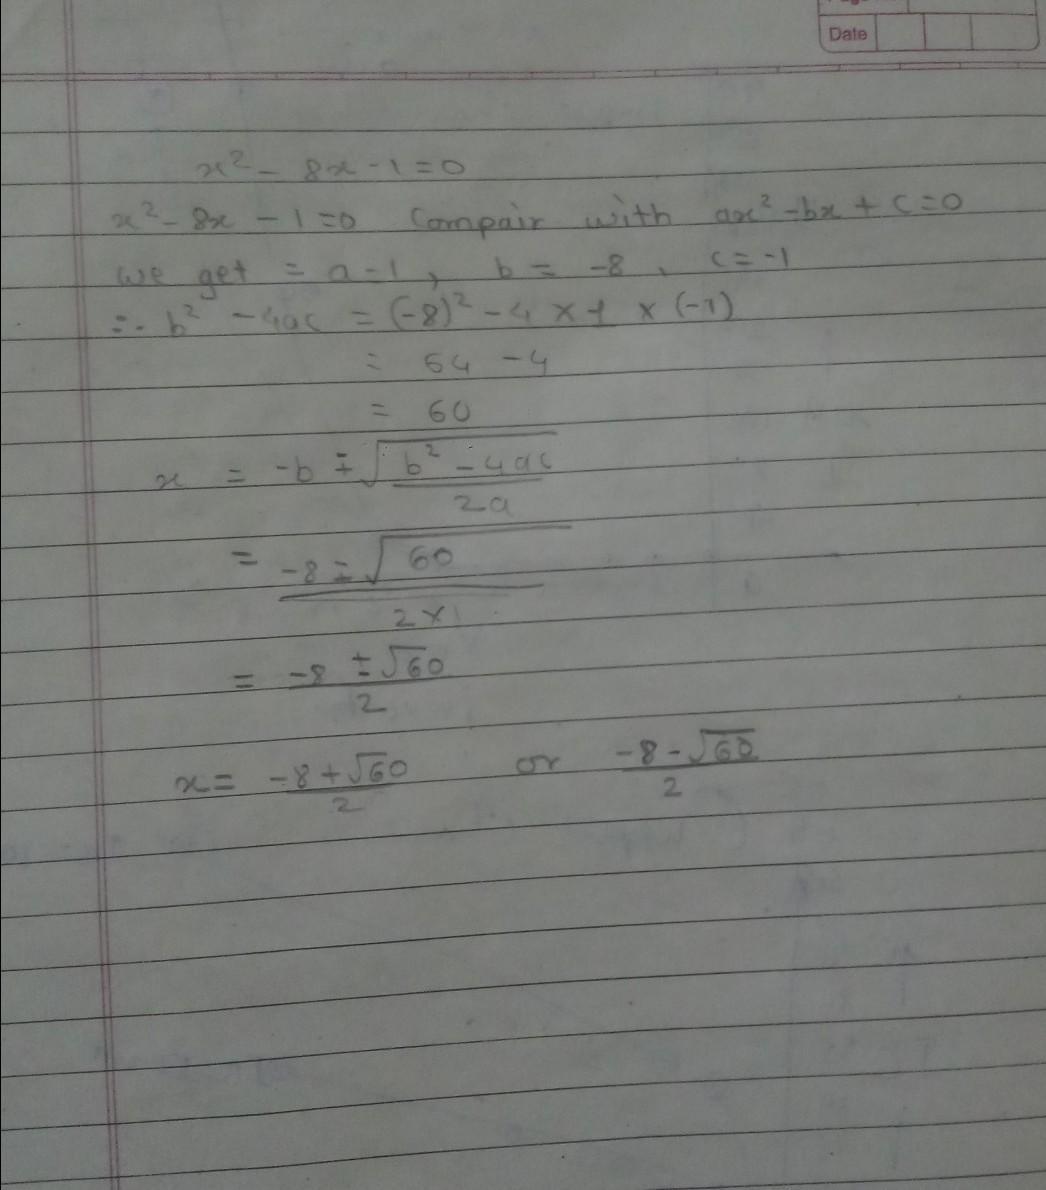 Date
x² - 8x - 1 = 0
x² - 8x - 1 = 0 Compair with ax² - bx + c = 0
we get = a - 1, b = -8, c = -1
∴ b² - 4ac = (-8)² - 4 × 1 × (-1)
= 64 - 4
= 60
x = -b ± √b² - 4ac
2a
= -8 ± √60
2 × 1
= -8 ± √60
2
x = -8 + √60 or -8 - √60
2 2